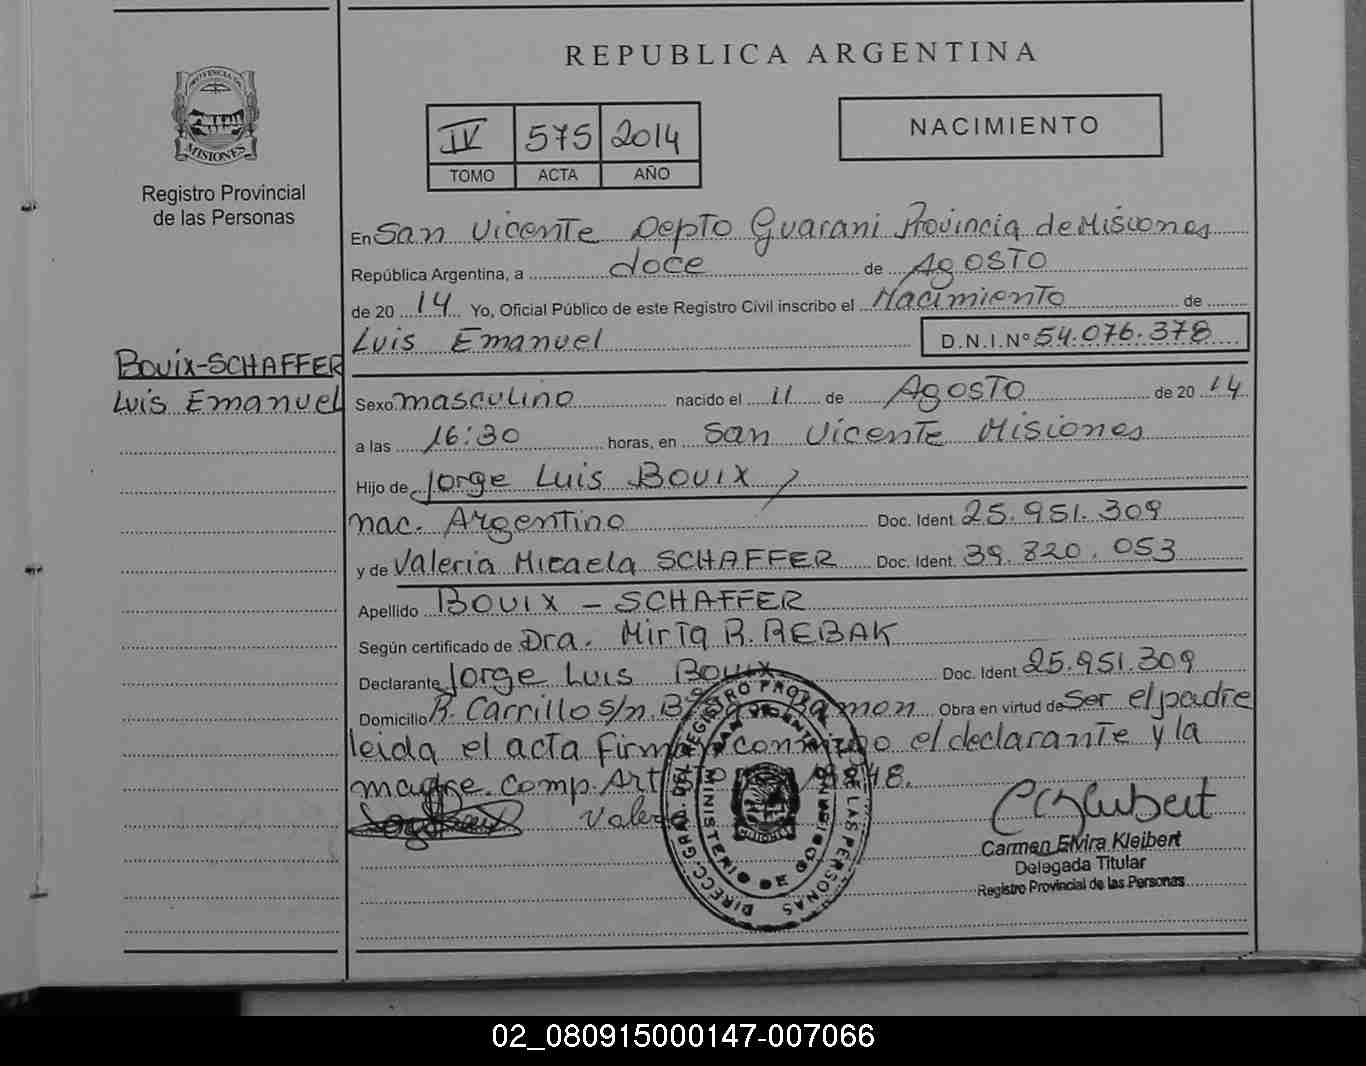 REPUBLICA ARGENTINA
PROVINCIA DE
MISIONES
Registro Provincial
de las Personas
IV 575 2014
TOMO ACTA AÑO
NACIMIENTO
En San Vicente Depto Guarani Provincia de Misiones
República Argentina, a doce de Agosto
de 20 14 Yo, Oficial Público de este Registro Civil inscribo el Nacimiento de
Luis Emanuel D.N.I.Nº 54.076.378
BOUIX-SCHAFFER
Luis Emanuel
Sexo masculino nacido el 11 de Agosto de 20 14
a las 16:30 horas, en San Vicente Misiones
Hijo de Jorge Luis BOUIX
nac. Argentino Doc. Ident. 25.951.309
y de Valeria Micaela SCHAFFER Doc. Ident. 39.820.053
Apellido BOUIX - SCHAFFER
Según certificado de Dra. Mirta R. REBAK
Declarante Jorge Luis Bouix Doc. Ident. 25.951.309
Domicilio R. Carrillo s/n. Bº Ramon Obra en virtud de Ser el padre
leida el acta firman conmigo el declarante y la
madre. comp. Art 18.248.
Valeria
DIRECC. GRAL. DEL REGISTRO PROV. DE LAS PERSONAS
SAN VICENTE
MINISTERIO DE GOBIERNO
MISIONES
Carmen Elvira Kleibert
Delegada Titular
Registro Provincial de las Personas
02_080915000147-007066